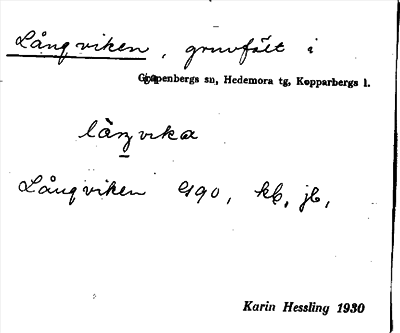 Långviken, gruvfält i
Garpenbergs sn, Hedemora tg, Kopparbergs l.
Långviken kb, jb,
Karin Hessling 1930